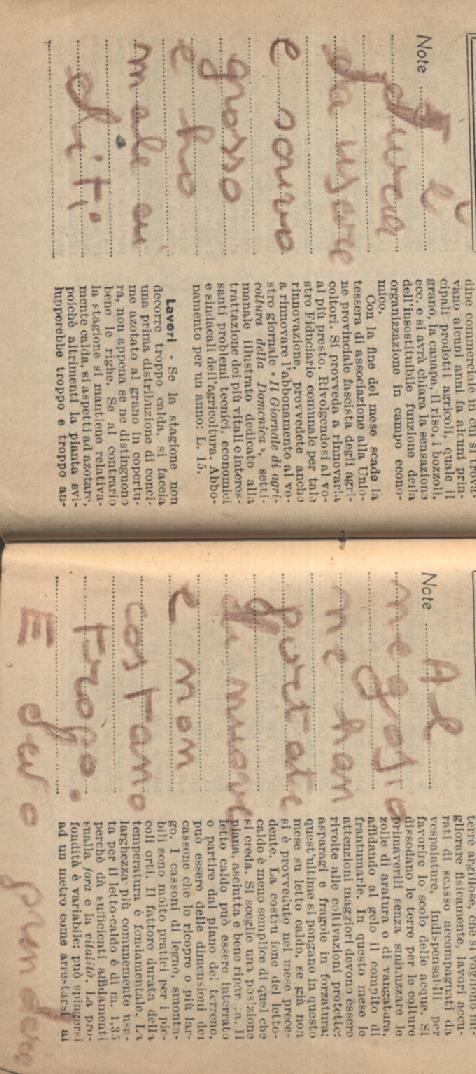 Note È
dura
da usare
e
grosso
e ho
male ai
diti
dine commerciale in cui si trova-
vano alcuni anni fa alcuni prin-
cipali prodotti agricoli, quale il
grano, la canapa, il riso, i bozzoli,
ecc. vi si avrà chiara la sensazione
dell'insostituibile funzione della
organizzazione in campo econo-
mico.
Con la fine del mese scade la
tessera di associazione alla Unio-
ne provinciale fascista degli agri-
coltori. Si provveda a rinnovarla
al più presto, rivolgendosi al vo-
stro fiduciario comunale per tale
rinnovazione, provvedete anche
a rinnovare l'abbonamento al vo-
stro giornale «Il Giornale di agri-
coltura della Domenica», setti-
manale illustrato dedicato alla
trattazione dei più vitali e interes-
santi problemi tecnici, economici
e sindacali dell'agricoltura. Abbo-
namento per un anno: L. 15.
Lavori - Se la stagione non
decorre troppo calda, si faccia
una prima distribuzione di conci-
me azotato al grano in copertu-
ra, non appena se ne distinguono
bene le righe. Se al contrario
la stagione si mantiene relativa-
mente calda, si aspetti ad azotare,
poichè altrimenti la pianta svi-
lupperebbe troppo e troppo au-
Note Al
negosio
ne han
portate
di nuove
e non
costano
tropo.
E devo prendere
terre argillose, che si vogliono mi-
gliorare fisicamente, lavori accu-
rati di scasso accompagnati da
vespaiature, indispensabili per
favorire lo scolo delle acque. Si
dissodano le terre per le colture
primaverili senza sminuzzare le
zolle di aratura o di vangatura,
affidando al gelo il compito di
frantumarle. In questo mese le
attenzioni maggiori devono essere
rivolte alle coltivazioni protette:
asparagi, fragole in forzatura;
quest'ultime si pongano in questo
mese su letto caldo, se già non
si è provveduto nel mese prece-
dente. La costruzione del letto-
caldo è meno semplice di quel che
si creda. Si sceglie una posizione
piana, asciutta e bene riparata. Il
letto caldo può essere interrato
o partire dal piano del terreno,
può essere delle dimensioni del
cassone che lo ricopre o più lar-
go. I cassoni di legno, smonta-
bili sono molto pratici per i pic-
coli orti. Il fattore durata della
temperatura è fondamentale. La
larghezza più comunemente usa-
ta per il letto-caldo è di m. 1,35
perchè dà sufficienti affidamenti
sulla fora e la vitalità. La pro-
fondità è variabile: può spingersi
ad un metro come arrestarsi ai